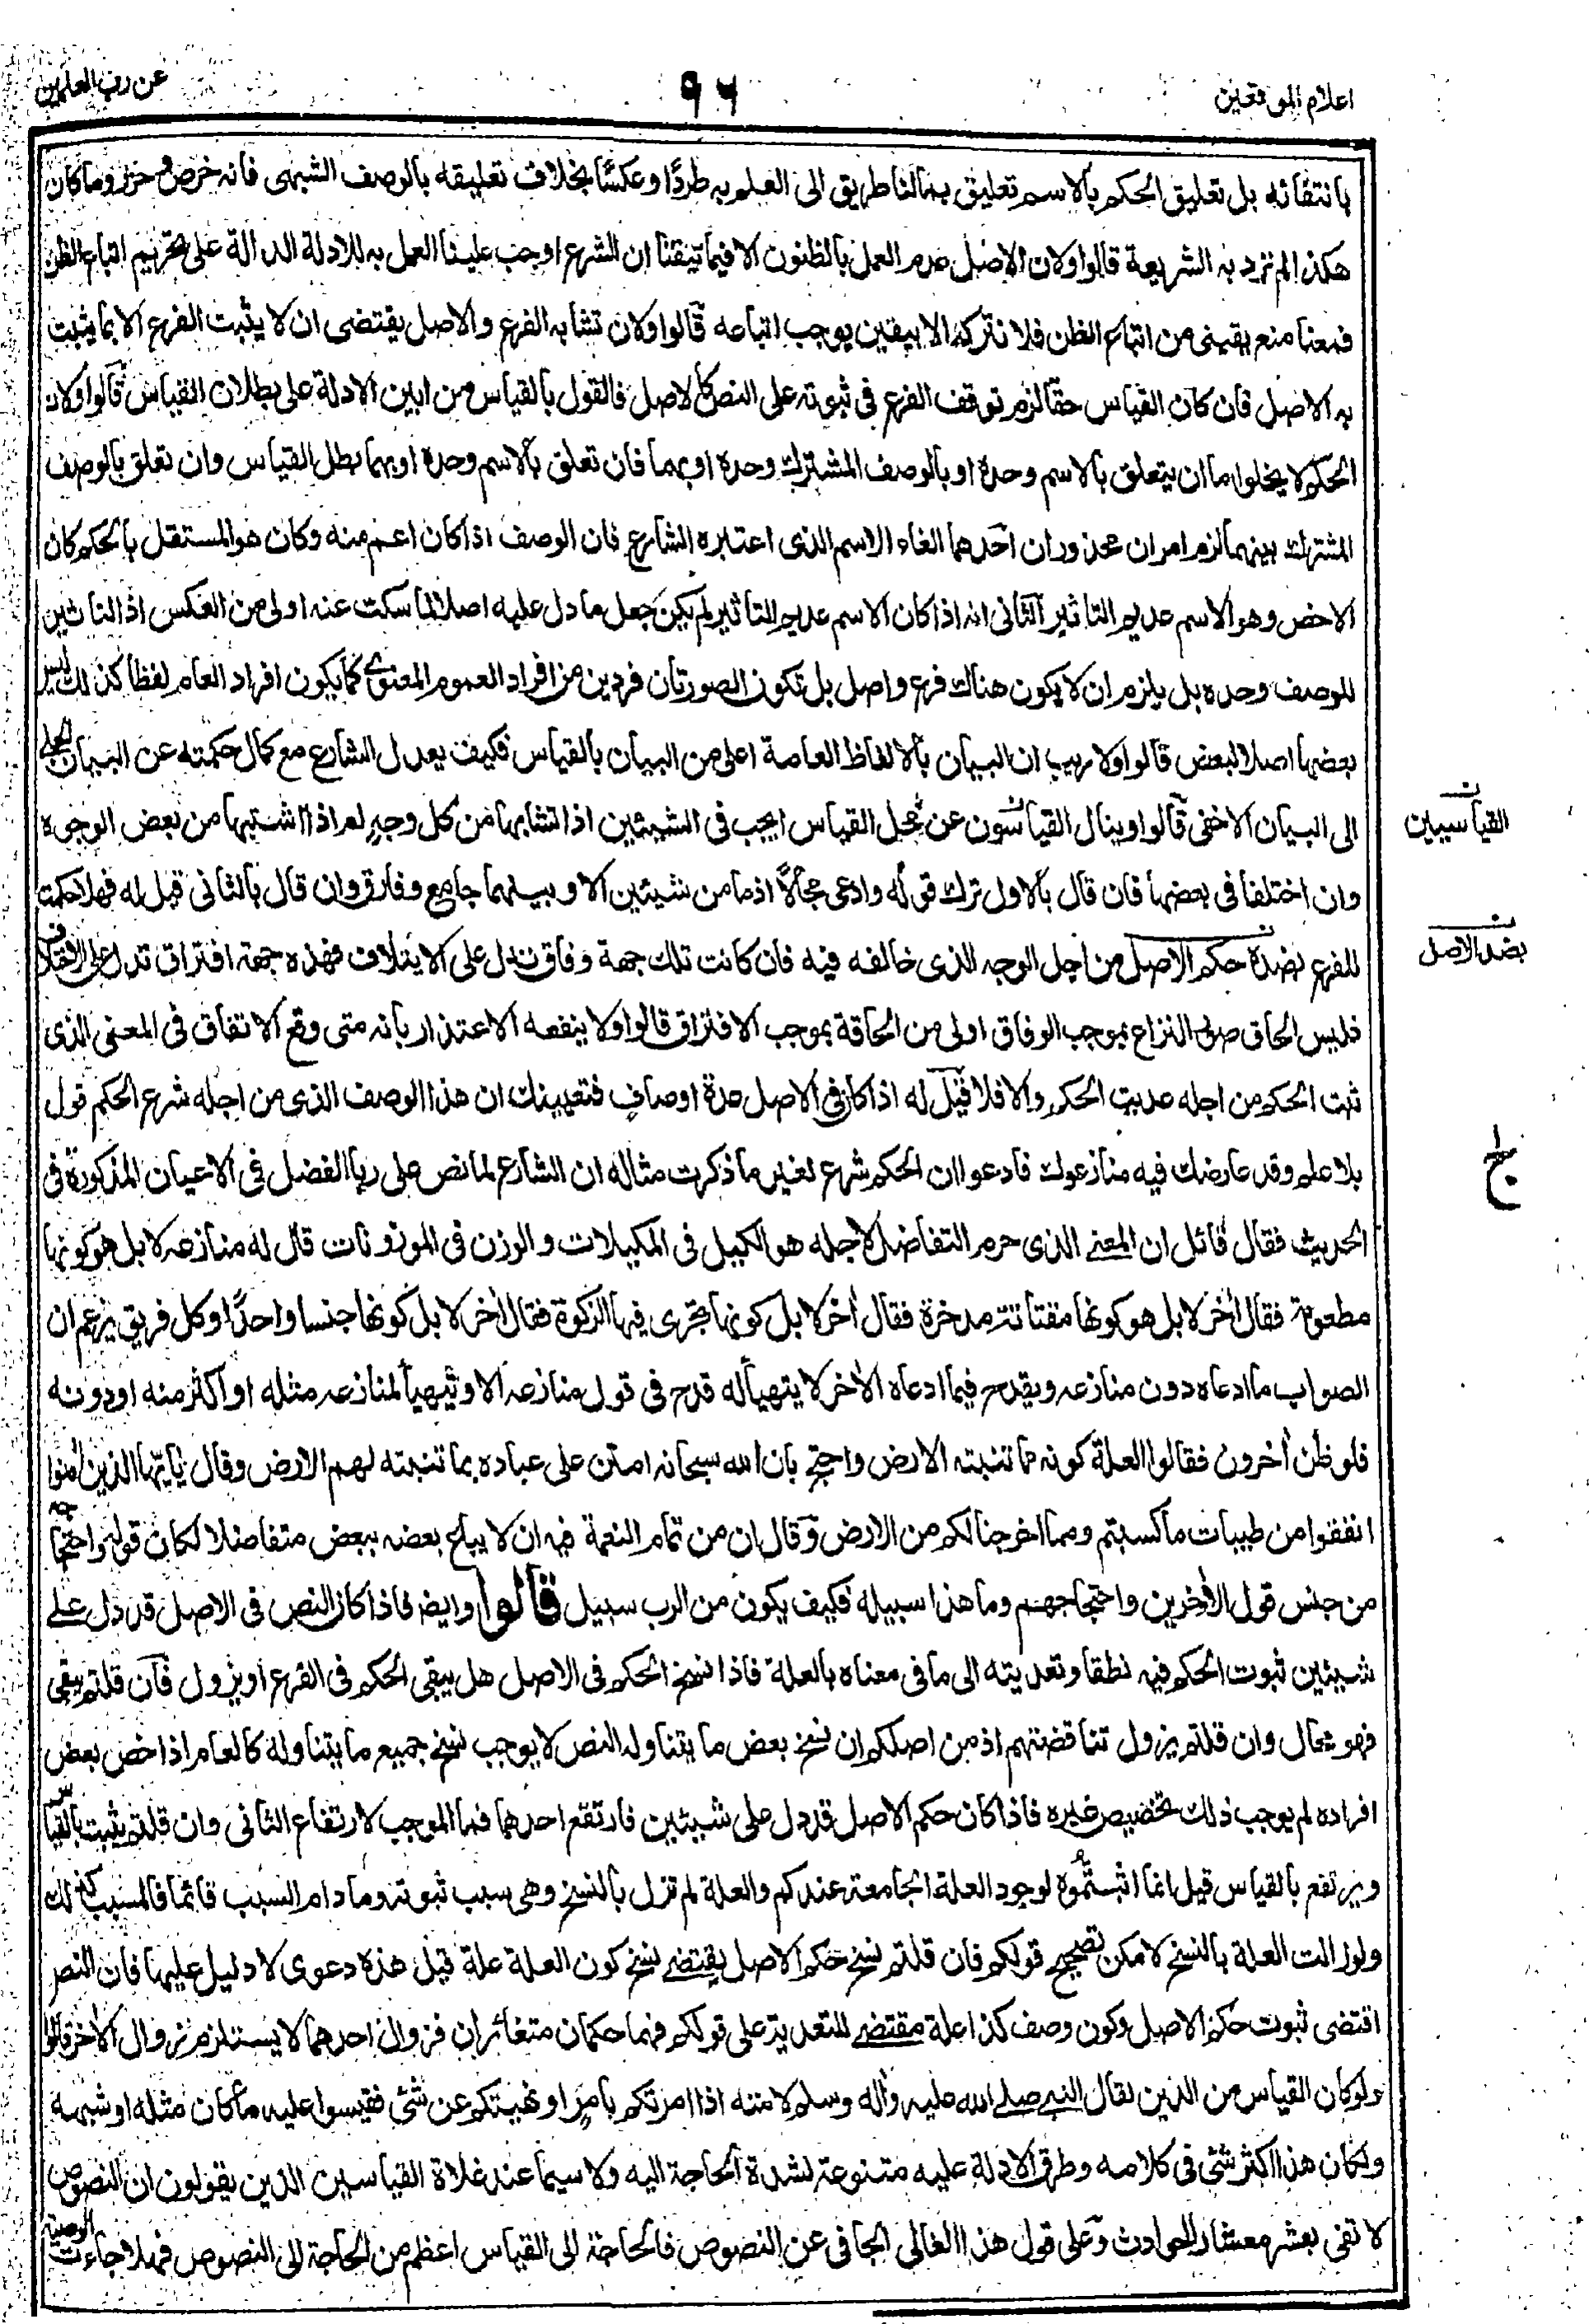 اعلام الموقعين
٩٦
عن رب العلمين
بانتفائه بل تعليق الحكم بالاسم تعليق بما لنا طريق الى العلم به طردًا وعكسًا بخلاف تعليقه بالوصف الشبهى فانه خرص وحزر وما كان
هكذا لم ترد به الشريعة قالوا ولان الاصل عدم العمل بالظنون الا فيما تيقنا ان الشرع اوجب علينا العمل به للادلة الدالة على تحريم اتباع الظن
فمعنا منع يقينى من اتباع الظن فلا نتركه الا بيقين يوجب اتباعه قالوا ولان تشابه الفرع والاصل يقتضى ان لا يثبت الفرع الا بما يثبت
به الاصل فان كان القياس حقا لزم توقف الفرع فى ثبوته على النص كالاصل فالقول بالقياس من ابين الادلة على بطلان القياس قالوا ولان
الحكم لا يخلوا ما ان يتعلق بالاسم وحدة او بالوصف المشترك وحدة او بهما فان تعلق بالاسم وحدة او بهما بطل القياس وان تعلق بالوصف
المشترك بينهما لزم امران محذوران احدهما الغاء الاسم الذى اعتبره الشارع فان الوصف اذا كان اعم منه وكان هو المستقل بالحكم كان
الاخص وهو الاسم عديم التاثير الثانى انه اذا كان الاسم عديم التاثير لم يكن جعل ما دل عليه اصلا لما سكت عنه اولى من العكس اذ التاثير
للوصف وحده بل يلزم ان لا يكون هناك فرع واصل بل تكون الصورتان فردين من افراد العموم المعنوى كما يكون افراد العام لفظا كذلك ليس
بعضها اصلا لبعض قالوا ولا ريب ان البيان بالالفاظ العامة اعلى من البيان بالقياس فكيف يعدل الشارع مع كمال حكمته عن البيان الجلى
الى البيان الاخفى قالوا ويسال القياسون عن محل القياس ايجب فى الشيئين اذا تشابها من كل وجه ام اذا اشتبها من بعض الوجوه
وان اختلفا فى بعضها فان قال بالاول ترك قوله وادعى محالًا اذ ما من شيئين الا وبينهما جامع وفارق وان قال بالثانى قيل له فهلا حكمت
للفرع بضدة حكم الاصل من اجل الوجه الذى خالفه فيه فان كانت تلك جهة وفاق تدل على الايتلاف فهذه جهة افتراق تدل على الاختلاف
فليس الحاق صور النزاع بموجب الوفاق اولى من الحاقة بموجب الافتراق قالوا ولا ينفعه الاعتذار بانه متى وقع الاتفاق فى المعنى الذى
ثبت الحكم من اجله عديت الحكم والا فلا قيل له اذا كان فى الاصل عدة اوصاف فتعيينك ان هذا الوصف الذى من اجله شرع الحكم قول
بلا علم وقد عارضك فيه منازعوك فادعوا ان الحكم شرع لغير ما ذكرت مثاله ان الشارع لما نص على ربا الفضل فى الاعيان المذكورة فى
الحديث فقال قائل ان المعنے الذى حرم التفاضل لاجله هو الكيل فى المكيلات والوزن فى الموزونات قال له منازعه لا بل هو كونها
مطعومة فقال اٰخر لا بل هو كونها مقتاتة مدخرة فقال اٰخر لا بل كونها تجرى فيها الزكوة فقال اٰخر لا بل كونها جنسا واحدًا وكل فريق يزعم ان
الصواب ما ادعاه دون منازعه ويقدح فيما ادعاه الاٰخر لا يتهيأ له قدح فى قول منازعه الا ويتهيأ لمنازعه مثله او اكثر منه او دونه
فلو ظن اٰخرون فقالوا العلة كونه مما تنبته الارض واحتج بان الله سبحانه امتن على عباده بما تنبته لهم الارض وقال يٰايّها الذين اٰمنوا
انفقوا من طيبات ما كسبتم ومما اخرجنا لكم من الارض وقال ان من تمام النعمة فيه ان لا يباع بعضه ببعض متفاضلا لكان قوله واحتجاجه
من جنس قول الاٰخرين واحتجاجهم وما هذا سبيله فكيف يكون من الرب سبيل قالوا وايضا فاذا كان النص فى الاصل قد دل على
شيئين ثبوت الحكم فيه نطقا وتعديته الى ما فى معناه بالعلة فاذا نسخ الحكم فى الاصل هل يبقى الحكم فى الفرع او يزول فان قلتم يبقى
فهو محال وان قلتم يزول تناقضتم اذ من اصلكم ان نسخ بعض ما يتناوله النص لا يوجب نسخ جميع ما يتناوله كالعام اذا خص بعض
افراده لم يوجب ذلك تخصيص غيره فاذا كان حكم الاصل قد دل على شيئين فارتفع احدهما فما الموجب لارتفاع الثانى وان قلتم يثبت بالقياس
ويرتفع بالقياس قيل انما اثبتموه لوجود العلة الجامعة عندكم والعلة لم تزل بالنسخ وهى سبب ثبوته وما دام السبب قائما فالمسبب كذلك
ولو زالت العلة بالنسخ لامكن تصحيح قولكم فان قلتم نسخ حكم الاصل يقتضے نسخ كون العلة علة قيل هذه دعوى لا دليل عليها فان النص
اقتضى ثبوت حكم الاصل وكون وصف كذا علة مقتضے للتعدية على قولكم فهما حكمان متغائران فزوال احدهما لا يستلزم زوال الاٰخر قالوا
ولو كان القياس من الدين لقال النبى صلے الله عليه واٰله وسلم لامته اذا امرتكم بامر او نهيتكم عن شئ فقيسوا عليه ما كان مثله او شبهه
ولكان هذا اكثر شئ فى كلامه وطرق الادلة عليه متنوعة لشدة الحاجة اليه ولا سيما عند غلاة القياسين الذين يقولون ان النصوص
لا تفى بعشر معشار الحوادث وعلى قول هذا الغالى الجافى عن النصوص فالحاجة الى القياس اعظم من الحاجة الى النصوص فهلا جاءت الوصية
القياسيين
بضد الاصل